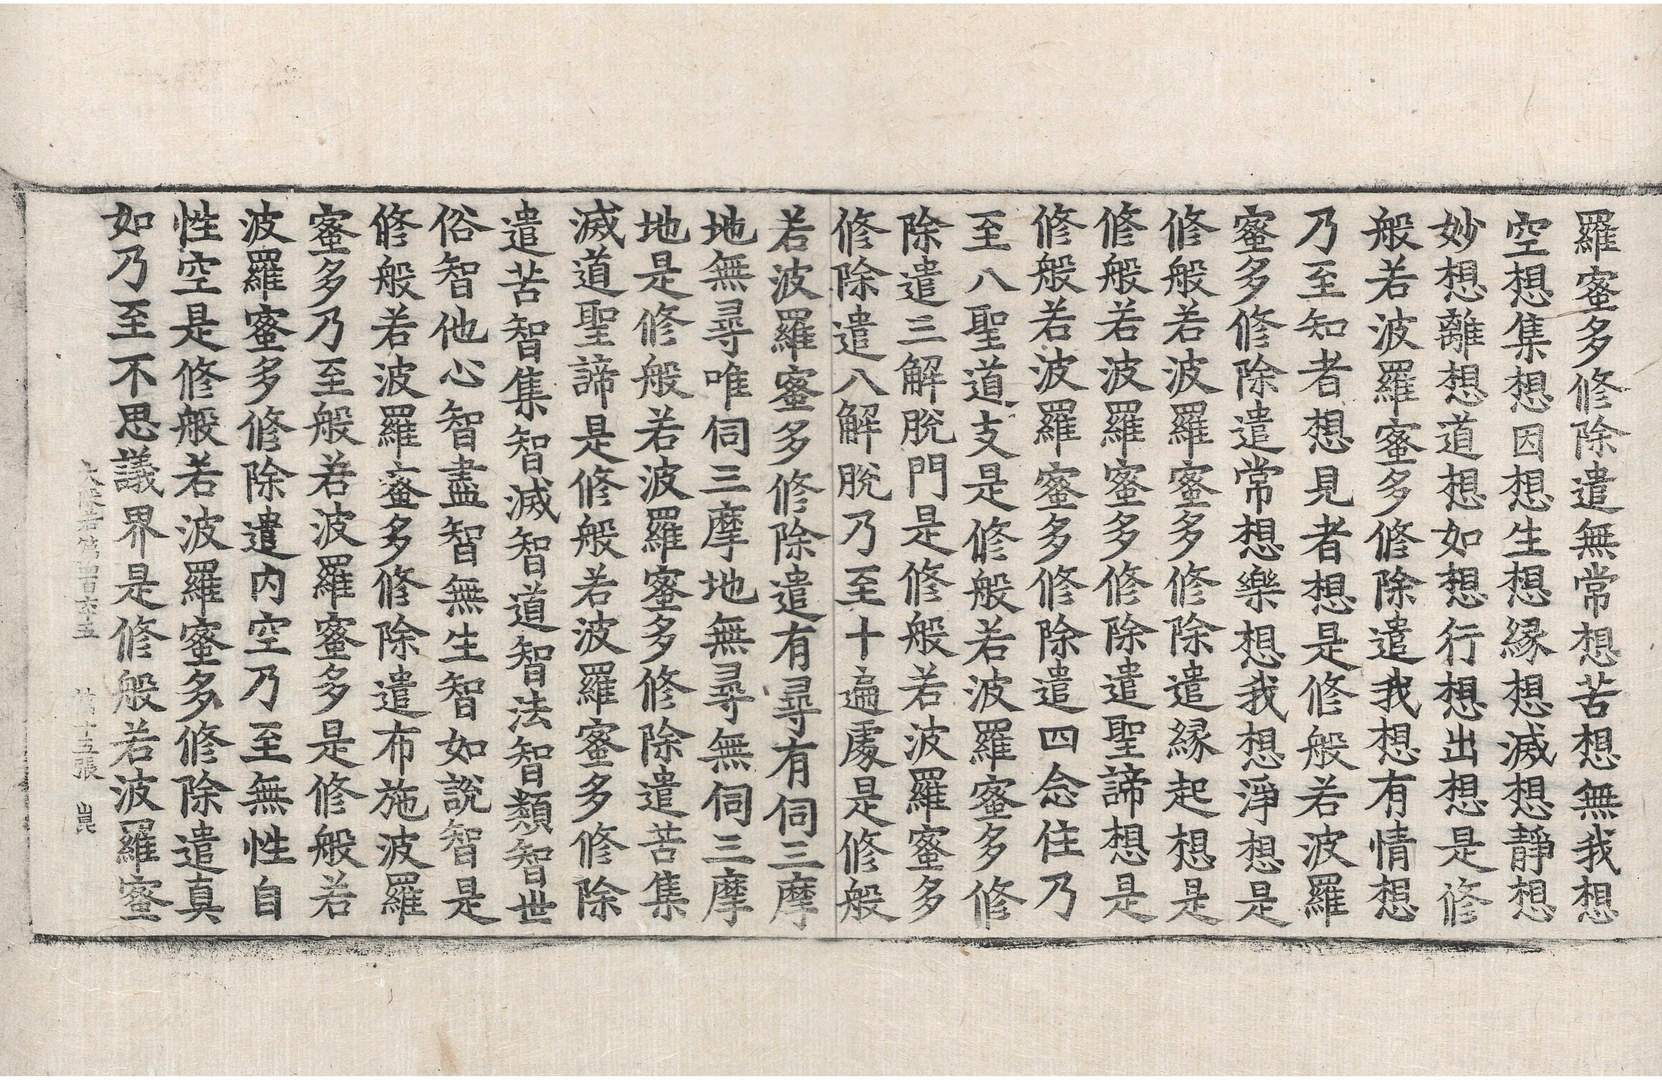 羅蜜多修除遣無常想苦想無我想
空想集想因想生想緣想滅想靜想
妙想離想道想如想行想出想是修
般若波羅蜜多修除遣我想有情想
乃至知者想見者想是修般若波羅
蜜多修除遣常想樂想我想淨想是
修般若波羅蜜多修除遣緣起想是
修般若波羅蜜多修除遣聖諦想是
修般若波羅蜜多修除遣四念住乃
至八聖道支是修般若波羅蜜多修
除遣三解脫門是修般若波羅蜜多
修除遣八解脫乃至十遍處是修般
若波羅蜜多修除遣有尋有伺三摩
地無尋唯伺三摩地無尋無伺三摩
地是修般若波羅蜜多修除遣苦集
滅道聖諦是修般若波羅蜜多修除
遣苦智集智滅智道智法智類智世
俗智他心智盡智無生智如說智是
修般若波羅蜜多修除遣布施波羅
蜜多乃至般若波羅蜜多是修般若
波羅蜜多修除遣內空乃至無性自
性空是修般若波羅蜜多修除遣真
如乃至不思議界是修般若波羅蜜
大般若第四百六十五 第十五張 崑